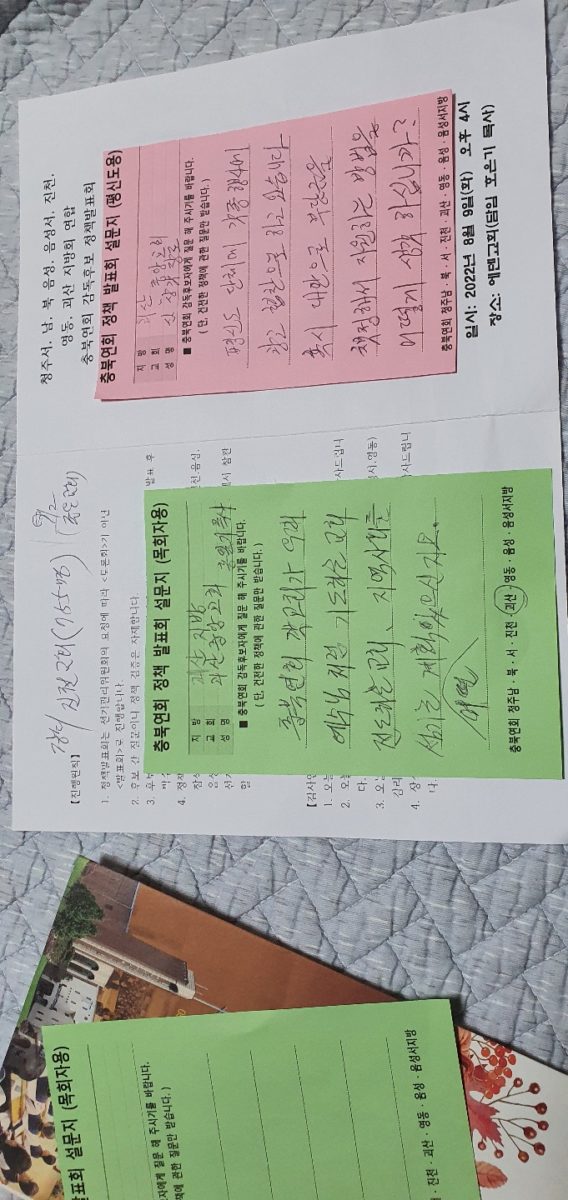 청주서, 남, 북 음성, 음성서, 진천,
영동, 괴산 지방회 연합
충북연회 감독후보 정책발표회
충북연회 정책 발표회 설문지 (평신도용)
지 방 괴산
교 회 중앙교회
성 명
■ 충북연회 감독후보자에게 질문 해 주시기를 바랍니다.
( 단, 건전한 정책에 관한 질문만 받습니다. )
평신도 단체에 각종 행사에
광고 협찬으로 하고 있습니다
혹시 대안으로 부담금을
책정해서 지원하는 방법을
어떻게 생각 하십니까?
충북연회 청주남 · 북 · 서 · 진천 · 괴산 · 영동 · 음성 · 음성서지방
일시: 2022년 8월 9일(화) 오후 4시
장소: 에덴교회(담임 포은기 목사)
【진행원칙】
1. 정책발표회는 선거관리위원회의 요청에 따라 <토론회>가 아닌
<발표회>로 진행합니다.
2. 후보 간 질문이나 정책 검증은 자제합니다.
3. 후보
4. 정책
【감사인
1. 오늘
2. 오늘
3. 오늘
4. 상
다.
충북연회 정책 발표회 설문지 (목회자용)
지 방 괴산지방
교 회 괴산중앙교회
성 명
■ 충북연회 감독후보자에게 질문 해 주시기를 바랍니다.
( 단, 건전한 정책에 관한 질문만 받습니다. )
충북연회 각교회가 우리
예수님 처럼 기도하는 교회
전도하는교회, 지역사회를
섬기는 계획있으신지요.
충북연회 청주남 · 북 · 서 · 진천 · 괴산 · 영동 · 음성 · 음성서지방
발표회 설문지 (목회자용)
보자에게 질문 해 주시기를 바랍니다.
책에 관한 질문만 받습니다. )
진천 · 괴산 · 영동 · 음성 · 음성서지방